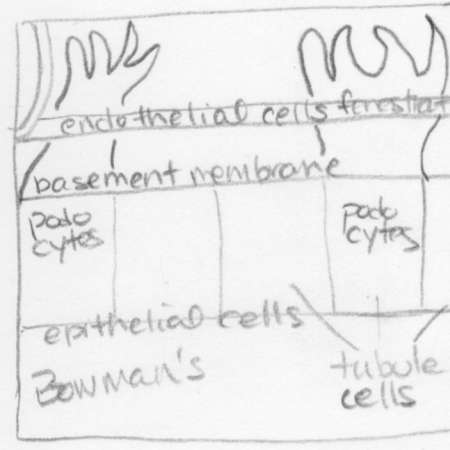 endothelial cells
basement membrane
podo
cytes
podo
cytes
epithelial cells
Bowman's
tubule
cells